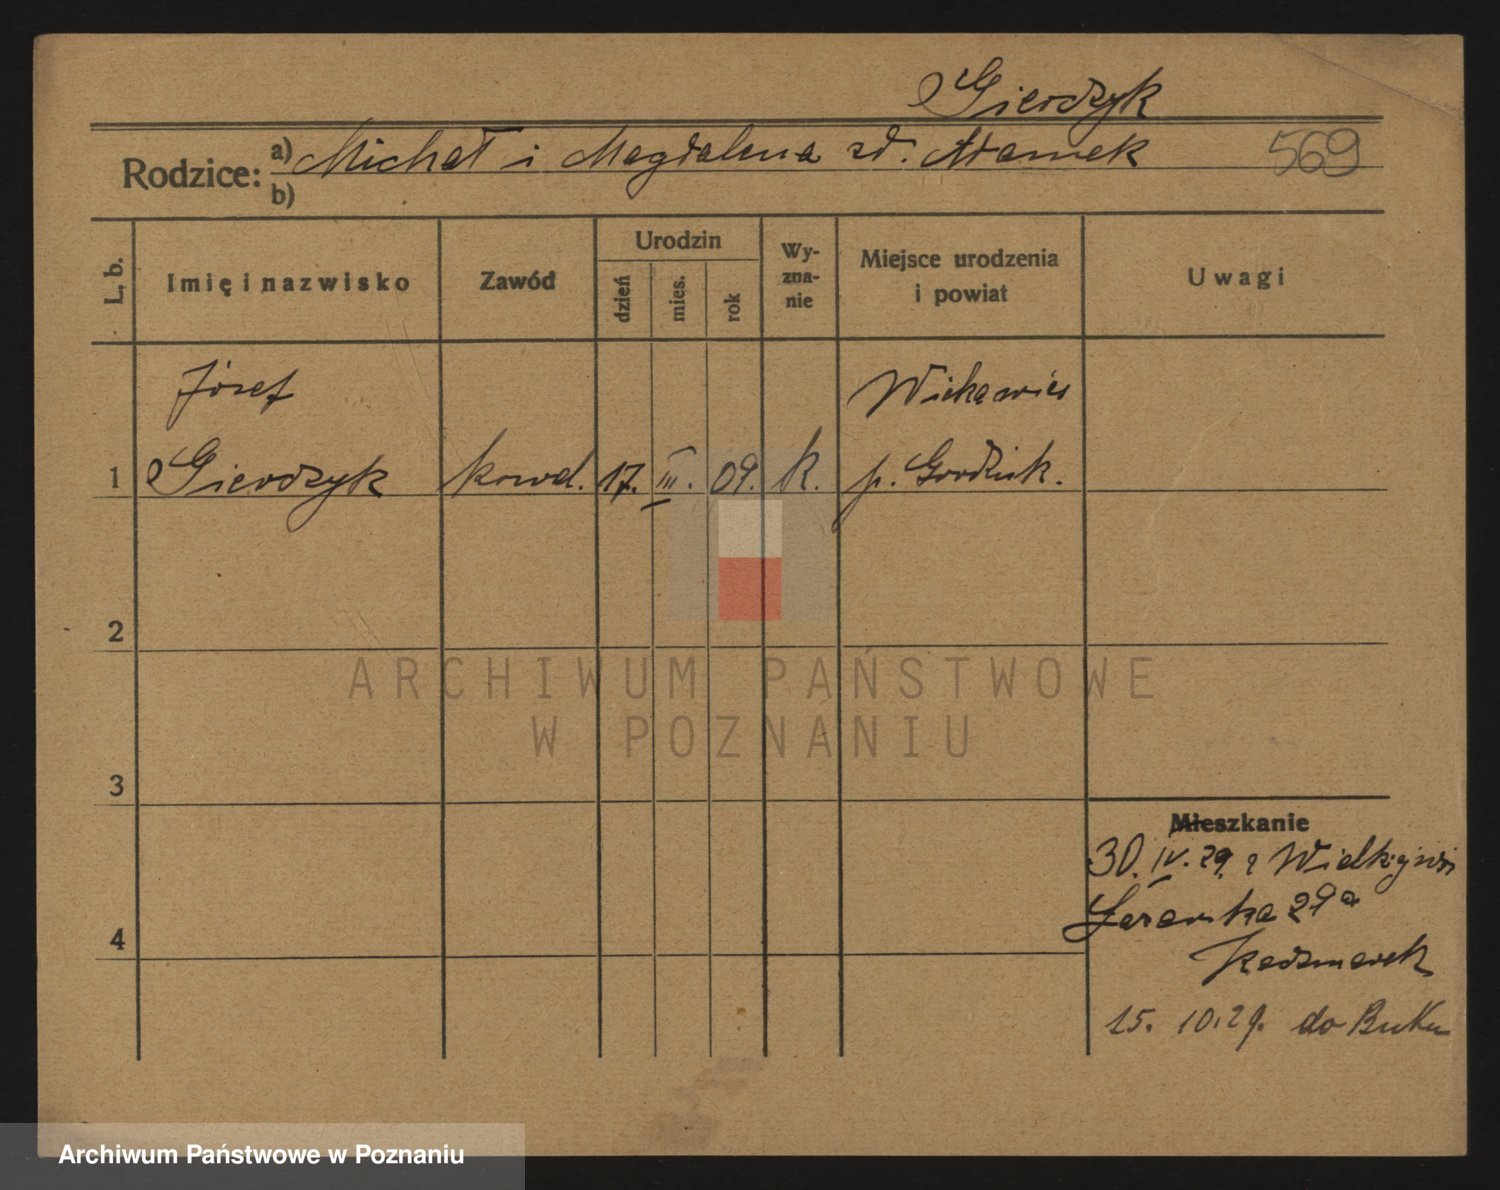 Gierdzyk
Rodzice: a) Michał i Magdalena zd. Adamek 569
b)
L. b. Imię i nazwisko Zawód Urodzin dzień mies. rok Wy-zna-nie Miejsce urodzenia i powiat Uwagi
Józef
1 Gierdzyk kowal. 17. III. 09. k. p. Grodzisk.
2
ARCHIWUM PAŃSTWOWE
W POZNANIU
3
4
Mieszkanie
30. IV. 29. z
29a
Kaczmarek
15. 10. 29. do Buku
Archiwum Państwowe w Poznaniu